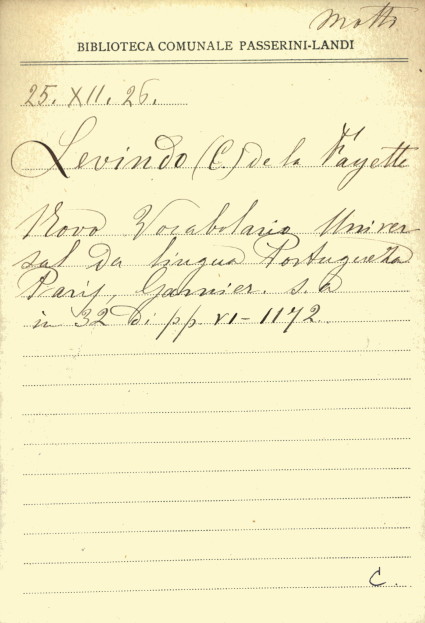 Motti
BIBLIOTECA COMUNALE PASSERINI-LANDI
25. XII. 26.
Levindo (C.) de la Fayette
Novo Vocabolario Univer
sal da lingua Portugueza
Paris, Garnier. s. a
in 32 di pp VI-1172.
C.